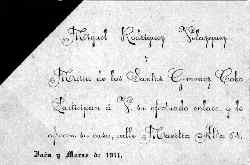 Miguel Rodríguez Velázquez
y
María de los Santos Gimenez Cobo
Participan á V. su efectuado enlace y le
ofrecen su casa, calle Maestra Alta 84,
Jaén y Marzo de 1911.